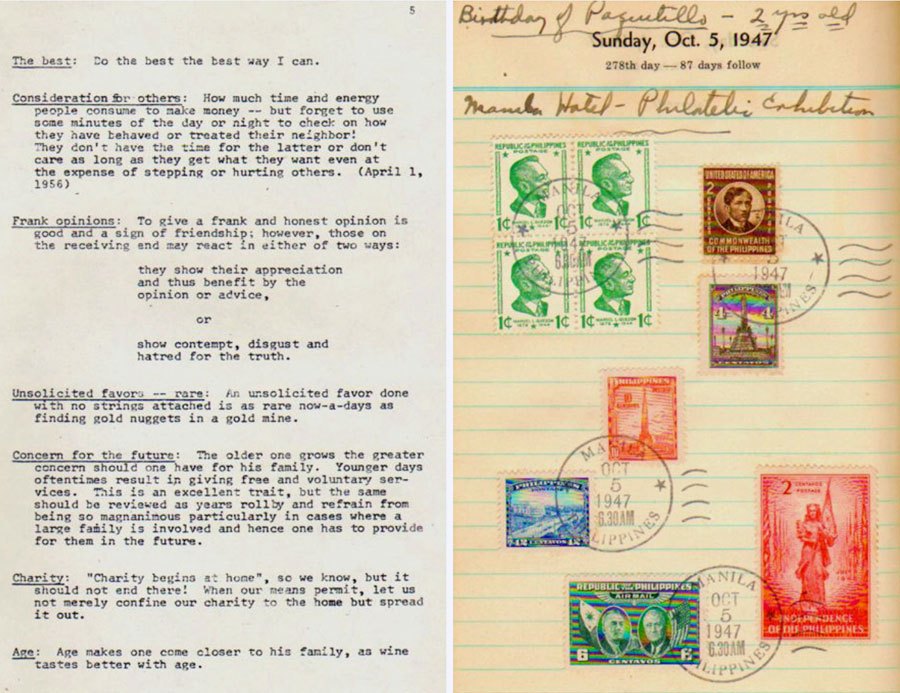 5
The best: Do the best the best way I can.
Consideration for others: How much time and energy
people consume to make money -- but forget to use
some minutes of the day or night to check on how
they have behaved or treated their neighbor!
They don't have the time for the latter or don't
care as long as they get what they want even at
the expense of stepping or hurting others. (April 1,
1956)
Frank opinions: To give a frank and honest opinion is
good and a sign of friendship; however, those on
the receiving end may react in either of two ways:
they show their appreciation
and thus benefit by the
opinion or advice,
or
show contempt, disgust and
hatred for the truth.
Unsolicited favors -- rare: An unsolicited favor done
with no strings attached is as rare now-a-days as
finding gold nuggets in a gold mine.
Concern for the future: The older one grows the greater
concern should one have for his family. Younger days
oftentimes result in giving free and voluntary ser-
vices. This is an excellent trait, but the same
should be reviewed as years rollby and refrain from
being so magnanimous particularly in cases where a
large family is involved and hence one has to provide
for them in the future.
Charity: "Charity begins at home", so we know, but it
should not end there! When our means permit, let us
not merely confine our charity to the home but spread
it out.
Age: Age makes one come closer to his family, as wine
tastes better with age.
Birthday of Paquitillo - 2 yrs old
Sunday, Oct. 5, 1947
278th day — 87 days follow
Manila Hotel - Philatelic Exhibition
REPUBLIC OF THE PHILIPPINES
POSTAGE
MANUEL L. QUEZON
1878 1944
1¢ 1¢
REPUBLIC OF THE PHILIPPINES
POSTAGE
MANUEL L. QUEZON
1878 1944
1¢ 1¢
REPUBLIC OF THE PHILIPPINES
1¢ MANUEL L. QUEZON 1¢
1878 1944
REPUBLIC OF THE PHILIPPINES
1¢ MANUEL L. QUEZON 1¢
1878 1944
MANILA
OCT
5
6.30AM
PHILIPPINES
UNITED STATES OF AMERICA
2
COMMONWEALTH
OF THE PHILIPPINES
MANILA
5
1947
PHILIPPINES
PHILIPPINES
4
PHILIPPINES
10
CENTAVOS
MANILA
OCT
5
1947
6.30AM
PHILIPPINES
PHILIPPINES
12 CENTAVOS 12
2 CENTAVOS
POSTAGE
JULY 4
INDEPENDENCE
OF THE PHILIPPINES
REPUBLIC OF THE PHILIPPINES
AIR MAIL
6 CENTAVOS 6
MANILA
OCT
5
1947
6.30AM
PHILIPPINES